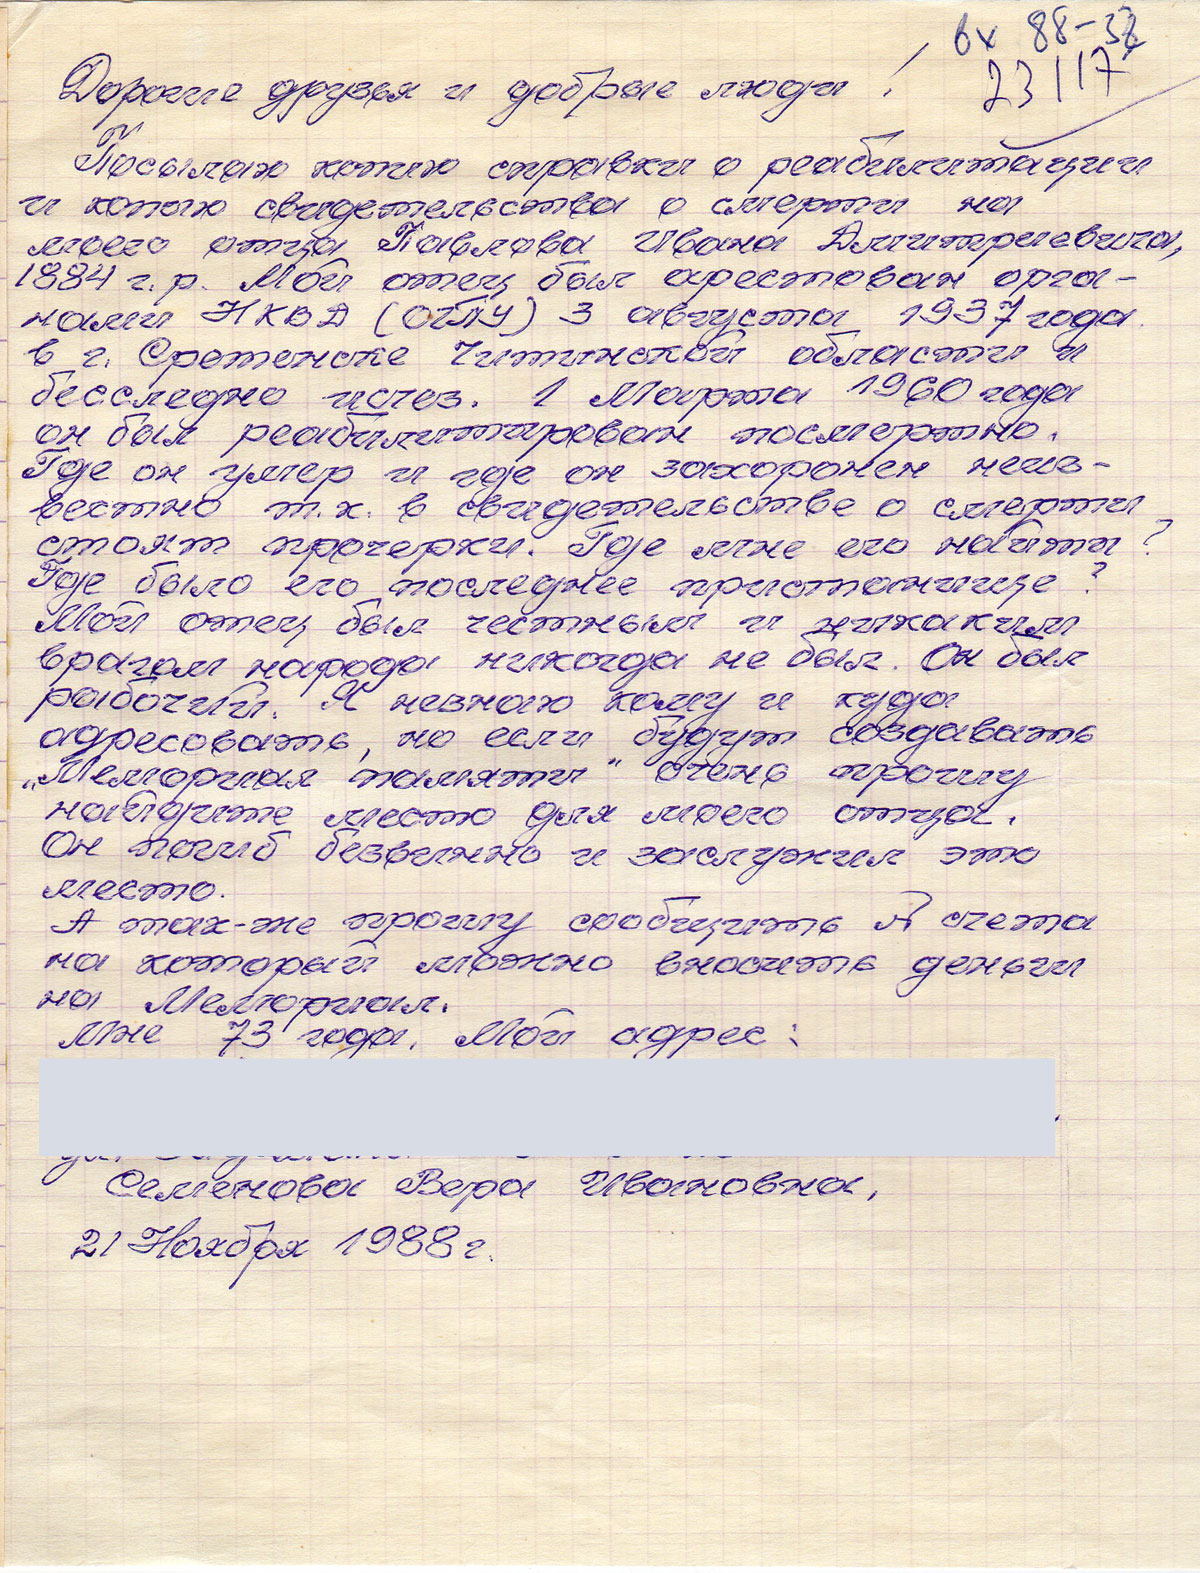 вх 88-38
23117
Дорогие друзья и добрые люди!
Посылаю копию справки о реабилитации
и копию свидетельства о смерти на
моего отца Павлова Ивана Дмитриевича,
1884 г.р. Мой отец был арестован орга-
нами НКВД (ОГПУ) 3 августа 1937 года
в г. Сретенске Читинской области и
бесследно исчез. 1 Марта 1960 года
он был реабилитирован посмертно.
Где он умер и где он захоронен неиз-
вестно т.к. в свидетельстве о смерти
стоят прочерки. Где мне его найти?
Где было его последнее пристанище?
Мой отец был честным и никаким
врагом народа никогда не был. Он был
рабочий. Я незнаю кому и куда
адресовать, но если будут создавать
„Мемориал памяти" очень прошу
найдите место для моего отца.
Он погиб безвинно и заслужил это
место.
А так-же прошу сообщить № счета
на который можно вносить деньги
на Мемориал.
Мне 73 года. Мой адрес:
Семенова Вера Ивановна,
21 Ноября 1988 г.